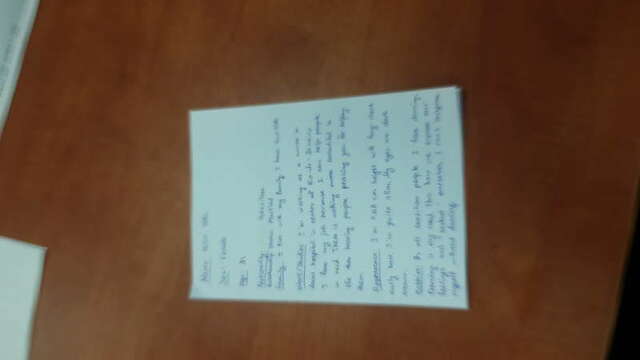 Name:
Sex: Female
Age:
Personality:
Relationship Status: Married
Family: I live with my family I have
Work/Studies: I'm working as a nurse in
local hospital in center of Rio-de-Janeiro
I love my job because I can help people
in need There is nothing more beautiful in
life than hearing people praising you for helping
them.
Appearance: I'm cm height with long dark
curly hair I'm quite slim. My eyes are dark
brown.
Hobbies: As all brazilian people I love dancing.
Dancing is my need this how we express our
feelings and ourselves I can't imagine
myself without dancing.